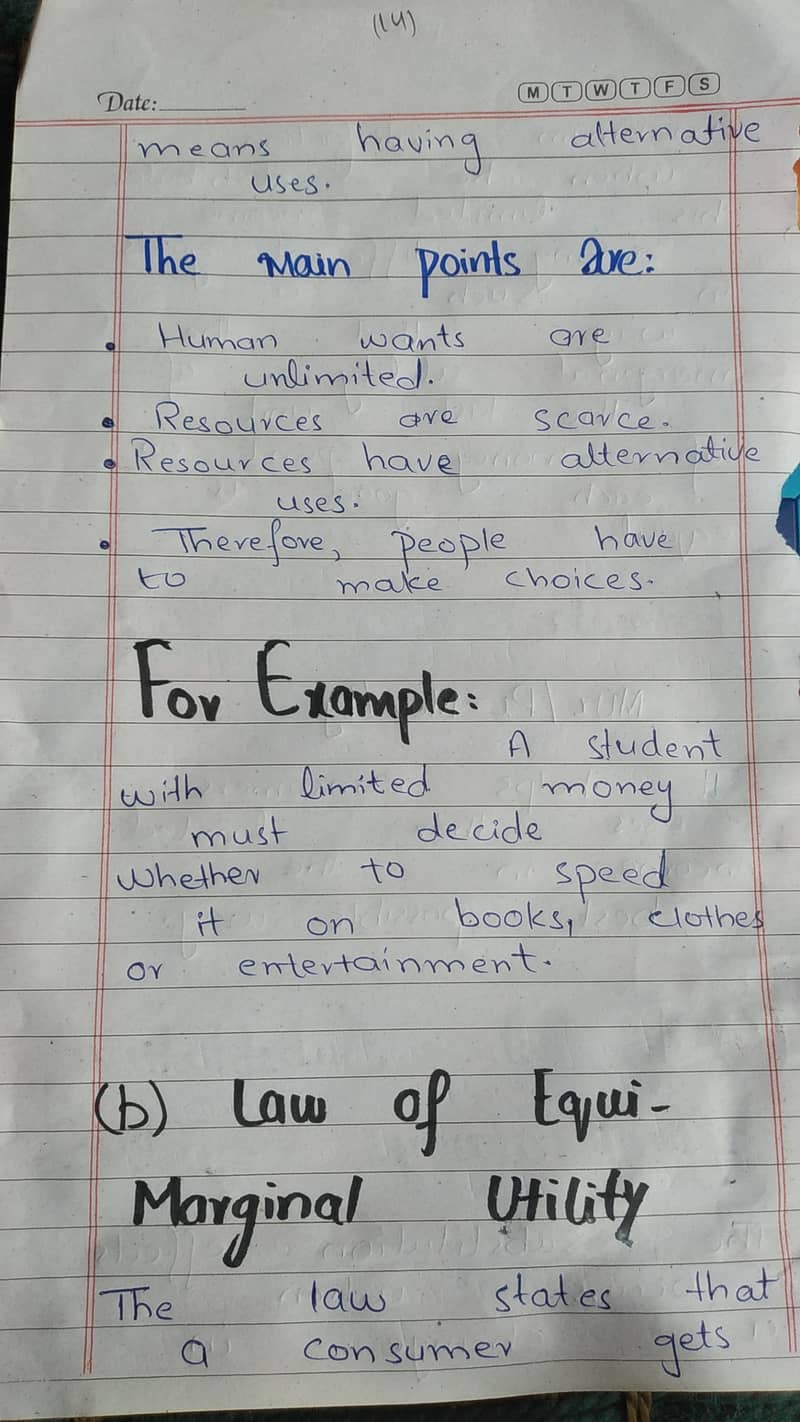 (14)
Date: M T W T F S
means having alternative
uses.
The Main points are:
• Human wants are
unlimited.
• Resources are scarce.
• Resources have alternative
uses.
• Therefore, people have
to make choices.
For Example:
A student
with limited money
must decide
whether to speed
it on books, clothes
or entertainment.
(b) Law of Equi-
Marginal Utility
The law states that
a consumer gets